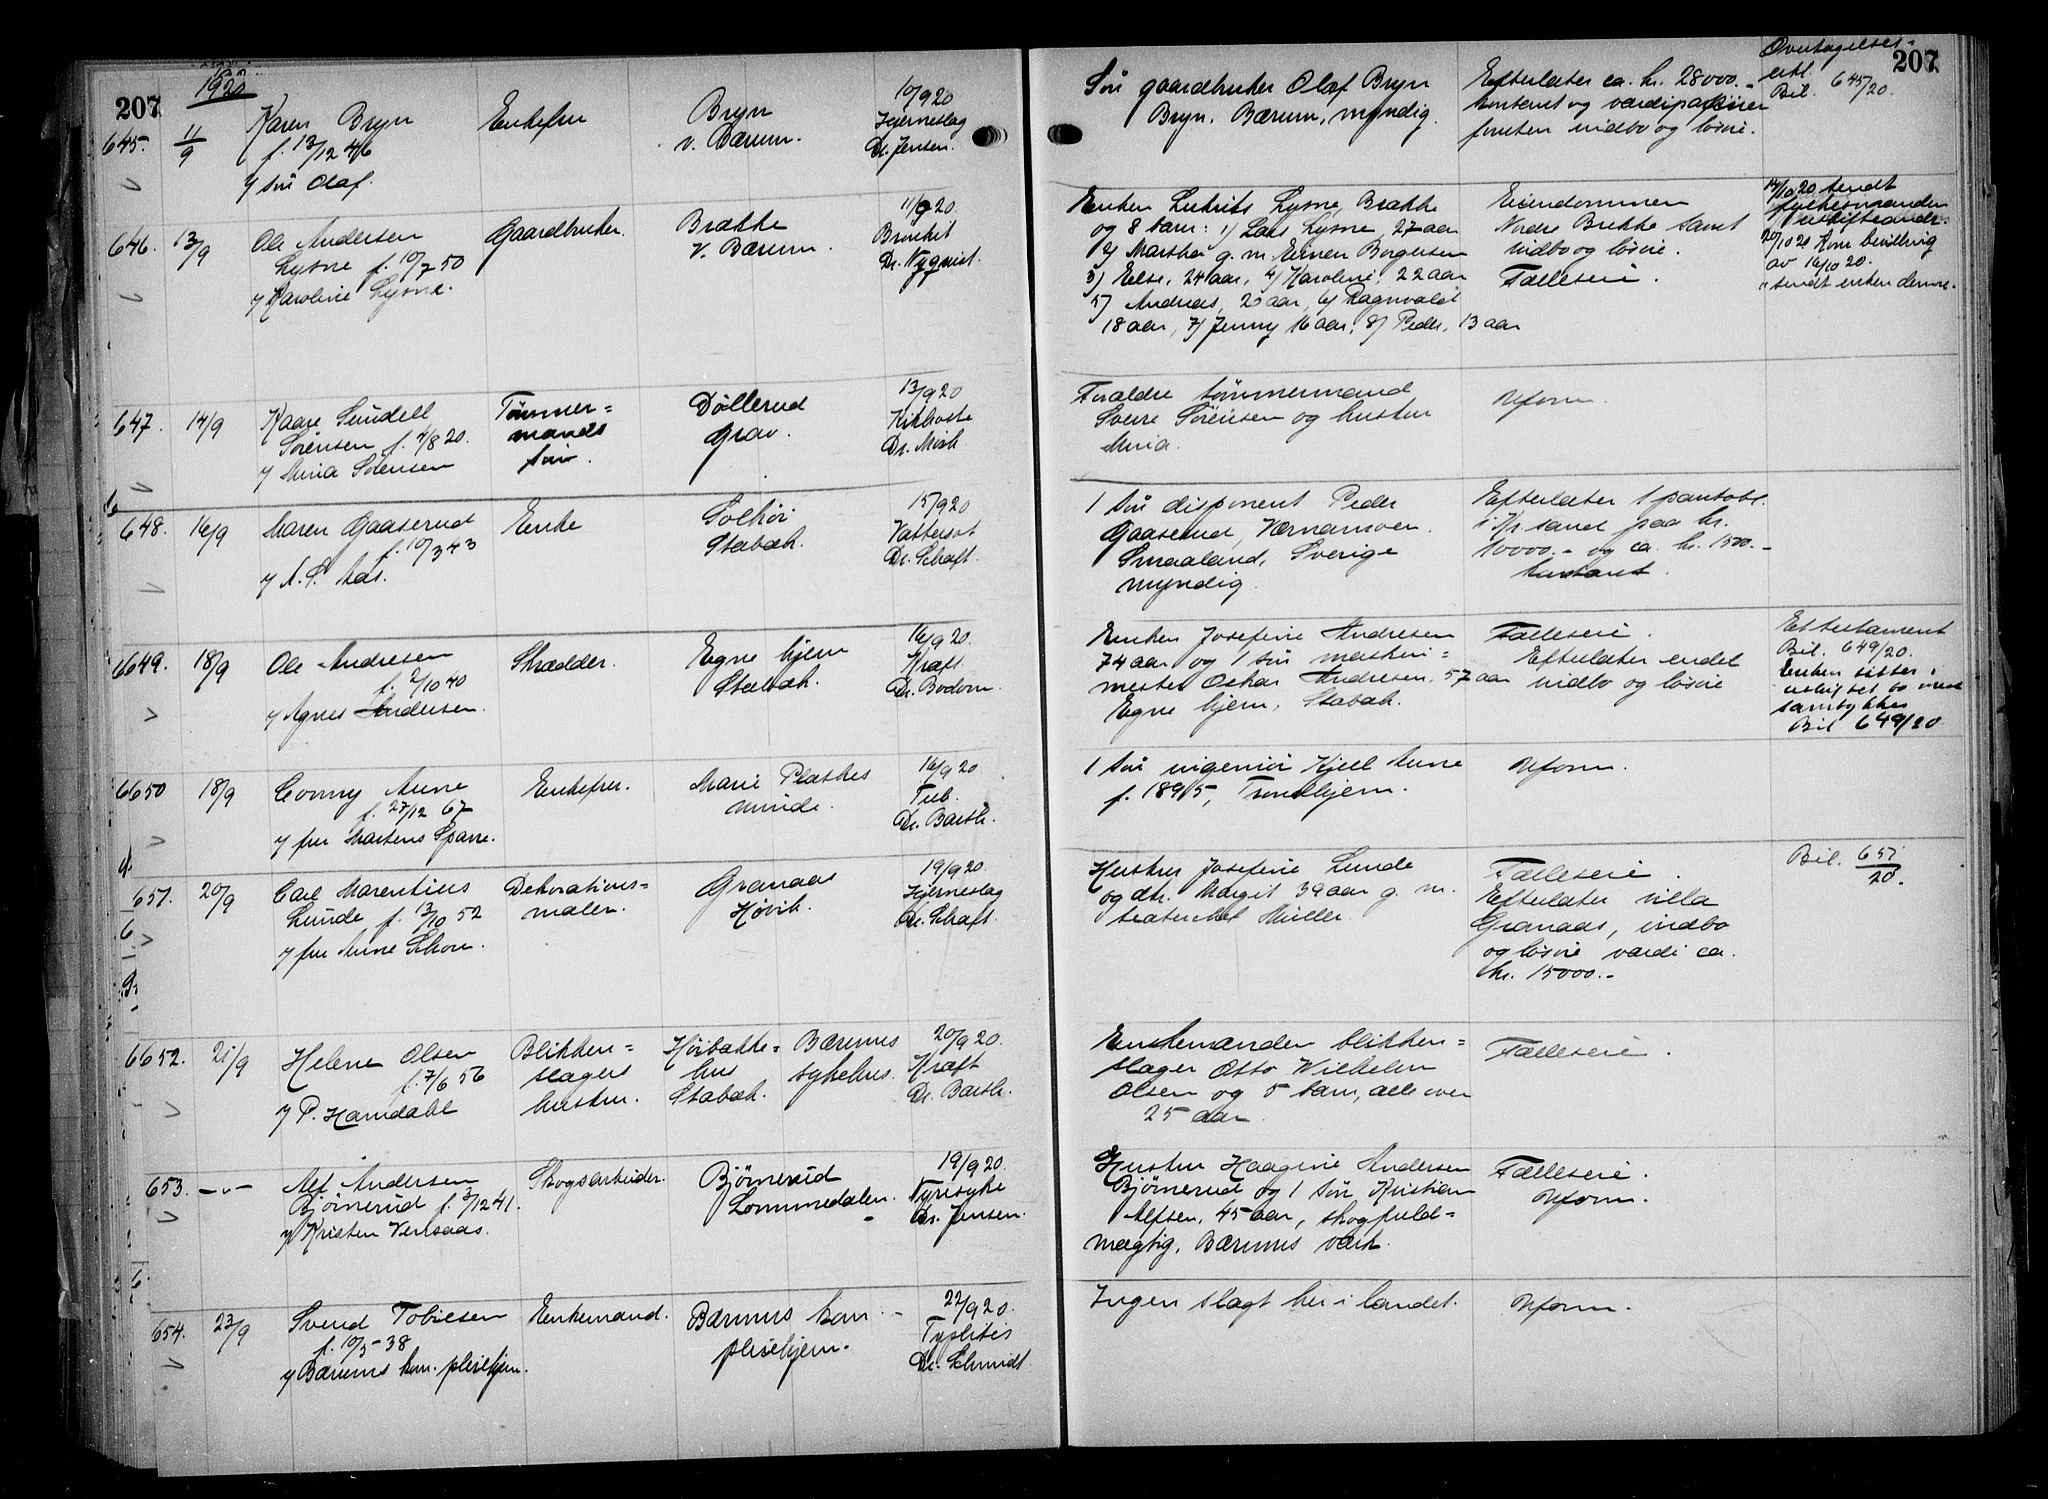 207
1920
207
645.
11/9
Karen Bryn
f. 13/12 46
v/ søn Olaf.
Enkefru
Bryn
v. Bærum.
10/9 20
Hjerneslag
Dr. Jensen.
Søn gaardbruker Olaf Bryn
Bryn, Bærum, myndig.
Efterlater ca. kr. 28000.-
kontant og værdipapirer
foruten indbo og løsøre.
Overtagelses-
erkl.
Bil. 645/20.
646.
13/9
Ole Andersen
Lysne f. 10/7 50
v/ Karoline Lysne.
Gaardbruker.
Brække
V. Bærum.
11/9 20.
Dr. Nyquist.
Enken Lysne, Brække
og 8 barn: 1) Lars Lysne, 27 aar
2) Martha g. m. Einer Borgersen
3) Else, 24 aar, 4) Karoline, 22 aar
5) Andreas, 20 aar, 6) Ragnvald
18 aar, 7) Jenny 16 aar, 8) Peder, 13 aar
Eiendommen
Nordre Brekke samt
indbo og løsøre.
Fælleseie.
14/10 20 sendt
20/10 20 Kom bevilling
av 16/10 20.
sendt enken denne.
647.
14/9
Kaare Sundell
Sørensen f. 4/8 20.
v/ Minia Sørensen
Tømmer=
mands
søn.
Døllerud
Grav.
13/9 20
Kikhoste
Dr. Mork.
Forældre tømmermand
Sverre Sørensen og hustru
Minia.
Uform.
648.
16/9
Maren Gaaserud
f. 10/3 43
v/ A. S. Aas.
Enke
Solhøi
Stabæk.
15/9 20
Vattersot
Dr. Schaft.
1 søn disponent Peder
Gaaserud, Værnamoen
Smaaland, Sverige
myndig.
Efterlater 1 pantobl.
paa kr.
10000.- og ca. kr. 1500.-
kontant.
649.
18/9
Ole Andresen
f. 2/10 40
v/ Agnes Andersen.
Skrædder.
Egne hjem
Stabæk.
16/9 20.
Kræft.
Dr. Bodom.
Enken Josefine Andresen
74 aar og 1 søn maskin=
mester Oskar Andresen, 57 aar
Egne hjem, Stabæk.
Fælleseie.
Efterlater endel
indbo og løsøre
Et testament
Bil. 649/20.
Enken sitter i
uskiftet bo med
samtykke
Bil 649/20.
650
18/9
Conny Aune
f. 27/12 67
v/ fru Martens Sparre.
Enkefru.
Marie Plathes
minde.
16/9 20
Tub.
Dr. Barth.
1 søn ingeniør Kjell Aune
f. 1895, Trondhjem.
Uform.
651.
20/9
Carl Marentius
Lunde f. 13/10 52
v/ fru Anne Schou.
Dekorations=
maler.
Granaas
Høvik.
19/9 20.
Hjerneslag
Dr. Schaft.
Hustru Josefine Lunde
og dtr. Margit 39 aar g. m.
teaterchef Müller.
Fælleseie.
Efterlater villa
Granaas, indbo
og løsøre værdi ca.
kr. 15000.-
Bil. 651/20.
652.
21/9
Helene Olsen
f. 7/6 56
v/ P. Hamdahl
Blikken=
slagers
hustru.
Høibakke=
hus
Stabæk.
Bærums
sykehus.
20/9 20.
Kræft
Dr. Barth.
Enkemanden blikken=
slager Otto Wilhelm
Olsen og 5 barn, alle over
25 aar.
Fælleseie.
653.
-"-
Alf Andersen
Bjørnerud f. 3/12 41.
v/ Kristen Verlsaas.
Skogsarbeider.
Bjørnerud
Lommedalen.
19/9 20.
Nyresyke
Dr. Jensen.
Hustru Haagine Andersen
Bjørnerud og 1 søn Kristian
Alfsen, 45 aar, skogfuld=
mægtig, Bærums værk.
Fælleseie.
Uform.
654.
23/9
Svend Tobiesen
f. 10/5-38
v/ Bærums kom. pleiehjem.
Enkemand.
Bærums kom.
pleiehjem.
22/9 20.
Dr. Schmidt.
Ingen slægt her i landet.
Uform.